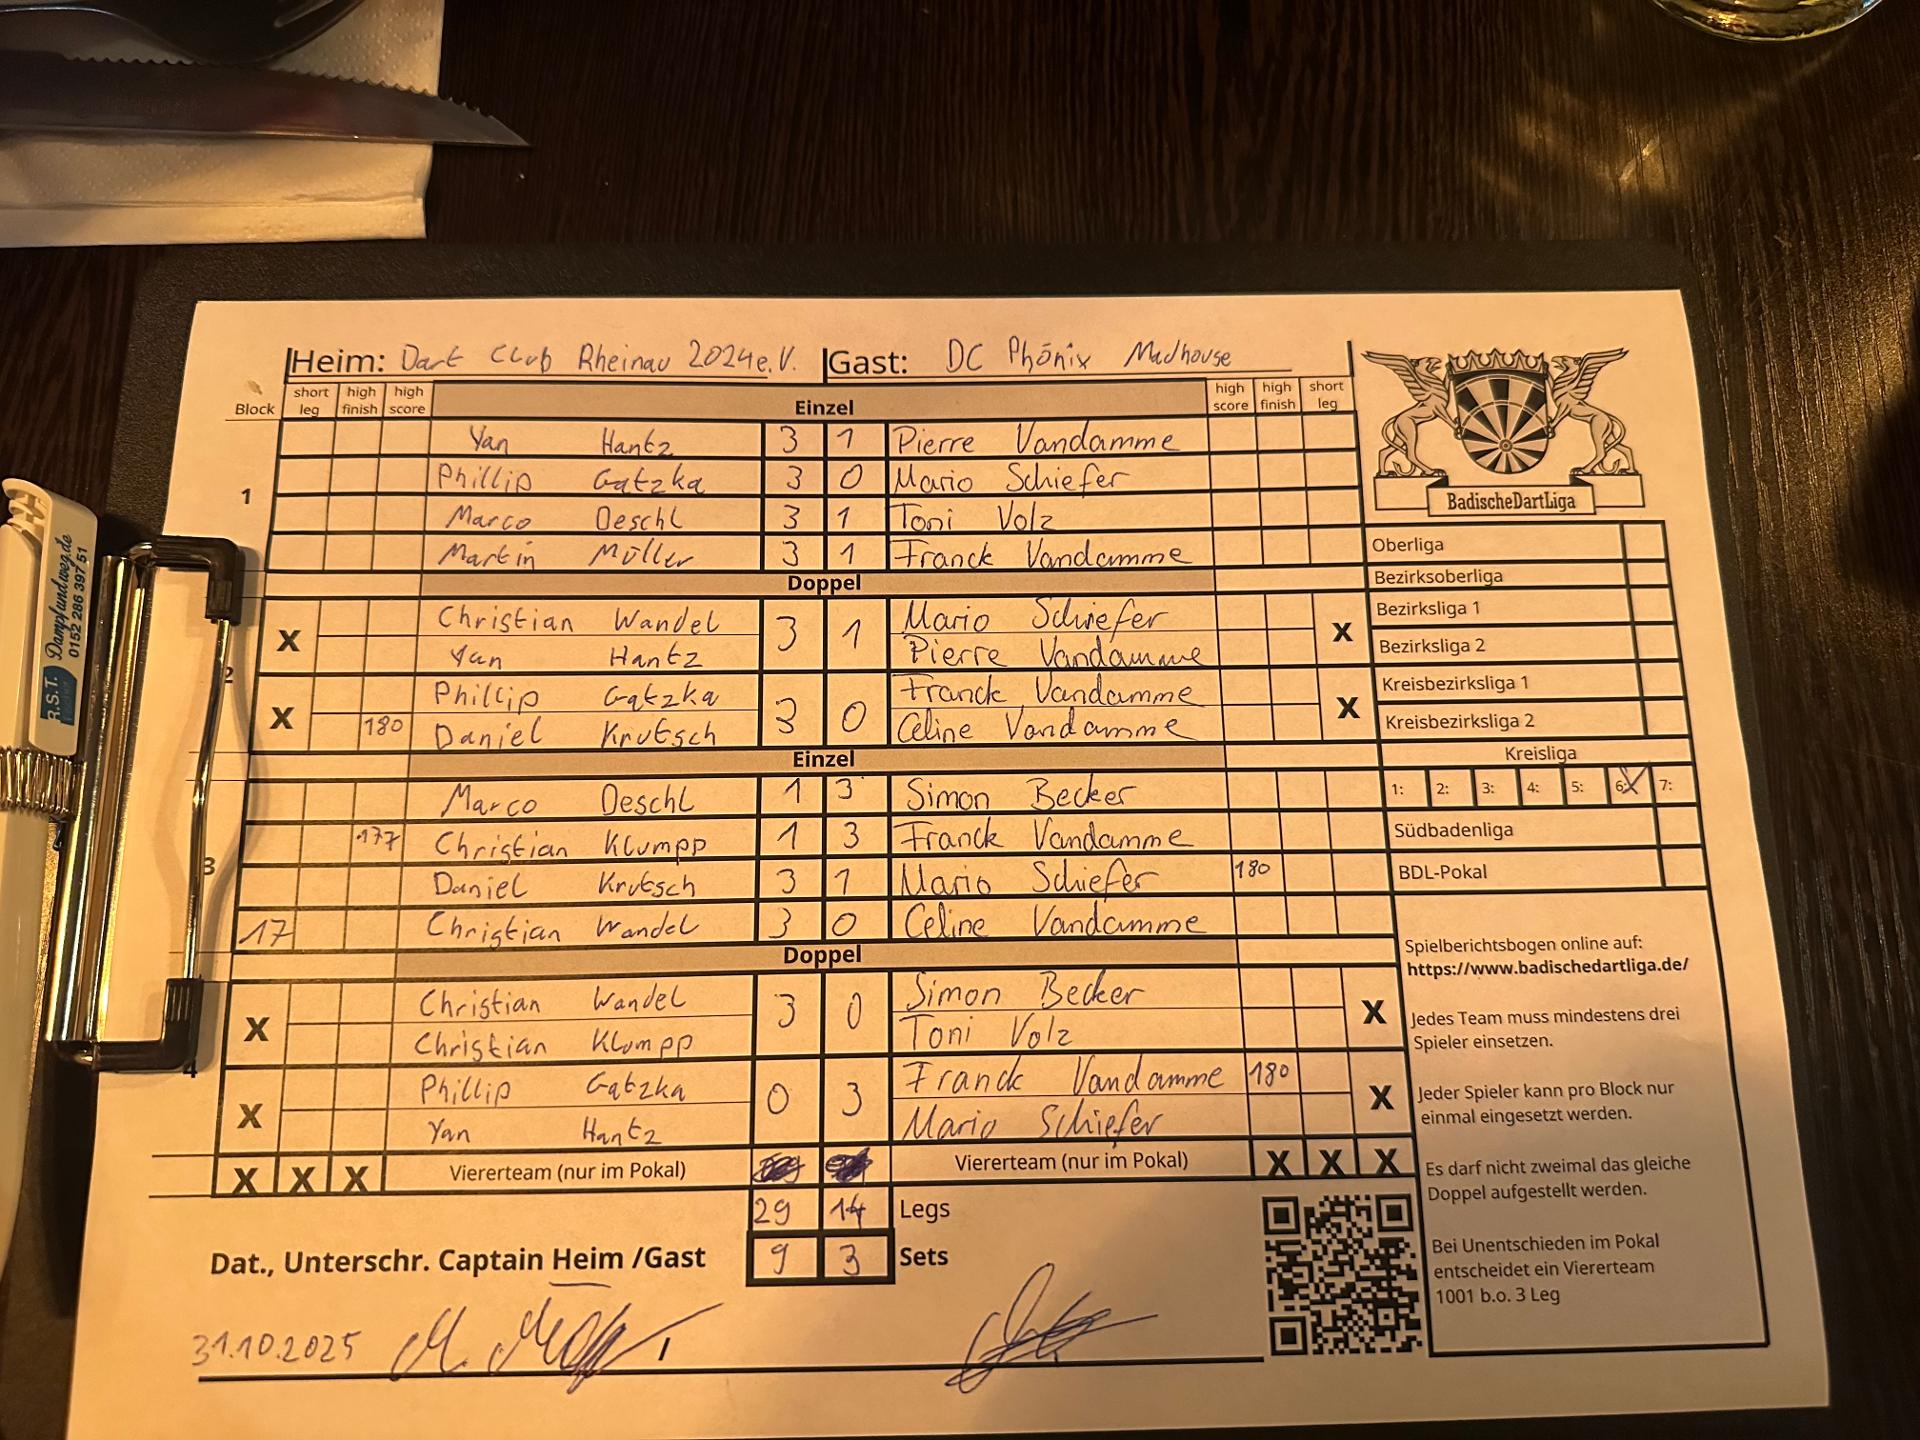 Heim: Dart Club Rheinau 2024 e.V. Gast: DC Phönix Madhouse
Block short leg high finish high score Einzel high score high finish short leg
1
Yan Hantz 3 1 Pierre Vandamme
Phillip Gatzka 3 0 Mario Schiefer
Marco Oeschl 3 1 Toni Volz
Martin Müller 3 1 Franck Vandamme
Doppel
2
X Christian Wandel 3 1 Mario Schiefer X
Yan Hantz Pierre Vandamme
X Phillip Gatzka 3 0 Franck Vandamme X
180 Daniel Krutsch Celine Vandamme
Einzel
3
Marco Oeschl 1 3 Simon Becker
177 Christian Klumpp 1 3 Franck Vandamme
Daniel Krutsch 3 1 Mario Schiefer 180
17 Christian Wandel 3 0 Celine Vandamme
Doppel
4
X Christian Wandel 3 0 Simon Becker X
Christian Klumpp Toni Volz
X Phillip Gatzka 0 3 Franck Vandamme 180 X
Yan Hantz Mario Schiefer
X X X Viererteam (nur im Pokal) Viererteam (nur im Pokal) X X X
29 14 Legs
Dat., Unterschr. Captain Heim /Gast 9 3 Sets
31.10.2025 /
BadischeDartLiga
Oberliga
Bezirksoberliga
Bezirksliga 1
Bezirksliga 2
Kreisbezirksliga 1
Kreisbezirksliga 2
Kreisliga
1: 2: 3: 4: 5: 6: X 7:
Südbadenliga
BDL-Pokal
Spielberichtsbogen online auf:
https://www.badischedartliga.de/
Jedes Team muss mindestens drei
Spieler einsetzen.
Jeder Spieler kann pro Block nur
einmal eingesetzt werden.
Es darf nicht zweimal das gleiche
Doppel aufgestellt werden.
Bei Unentschieden im Pokal
entscheidet ein Viererteam
1001 b.o. 3 Leg
R.S.T.
Dampfundweg.de
0152 286 397 51